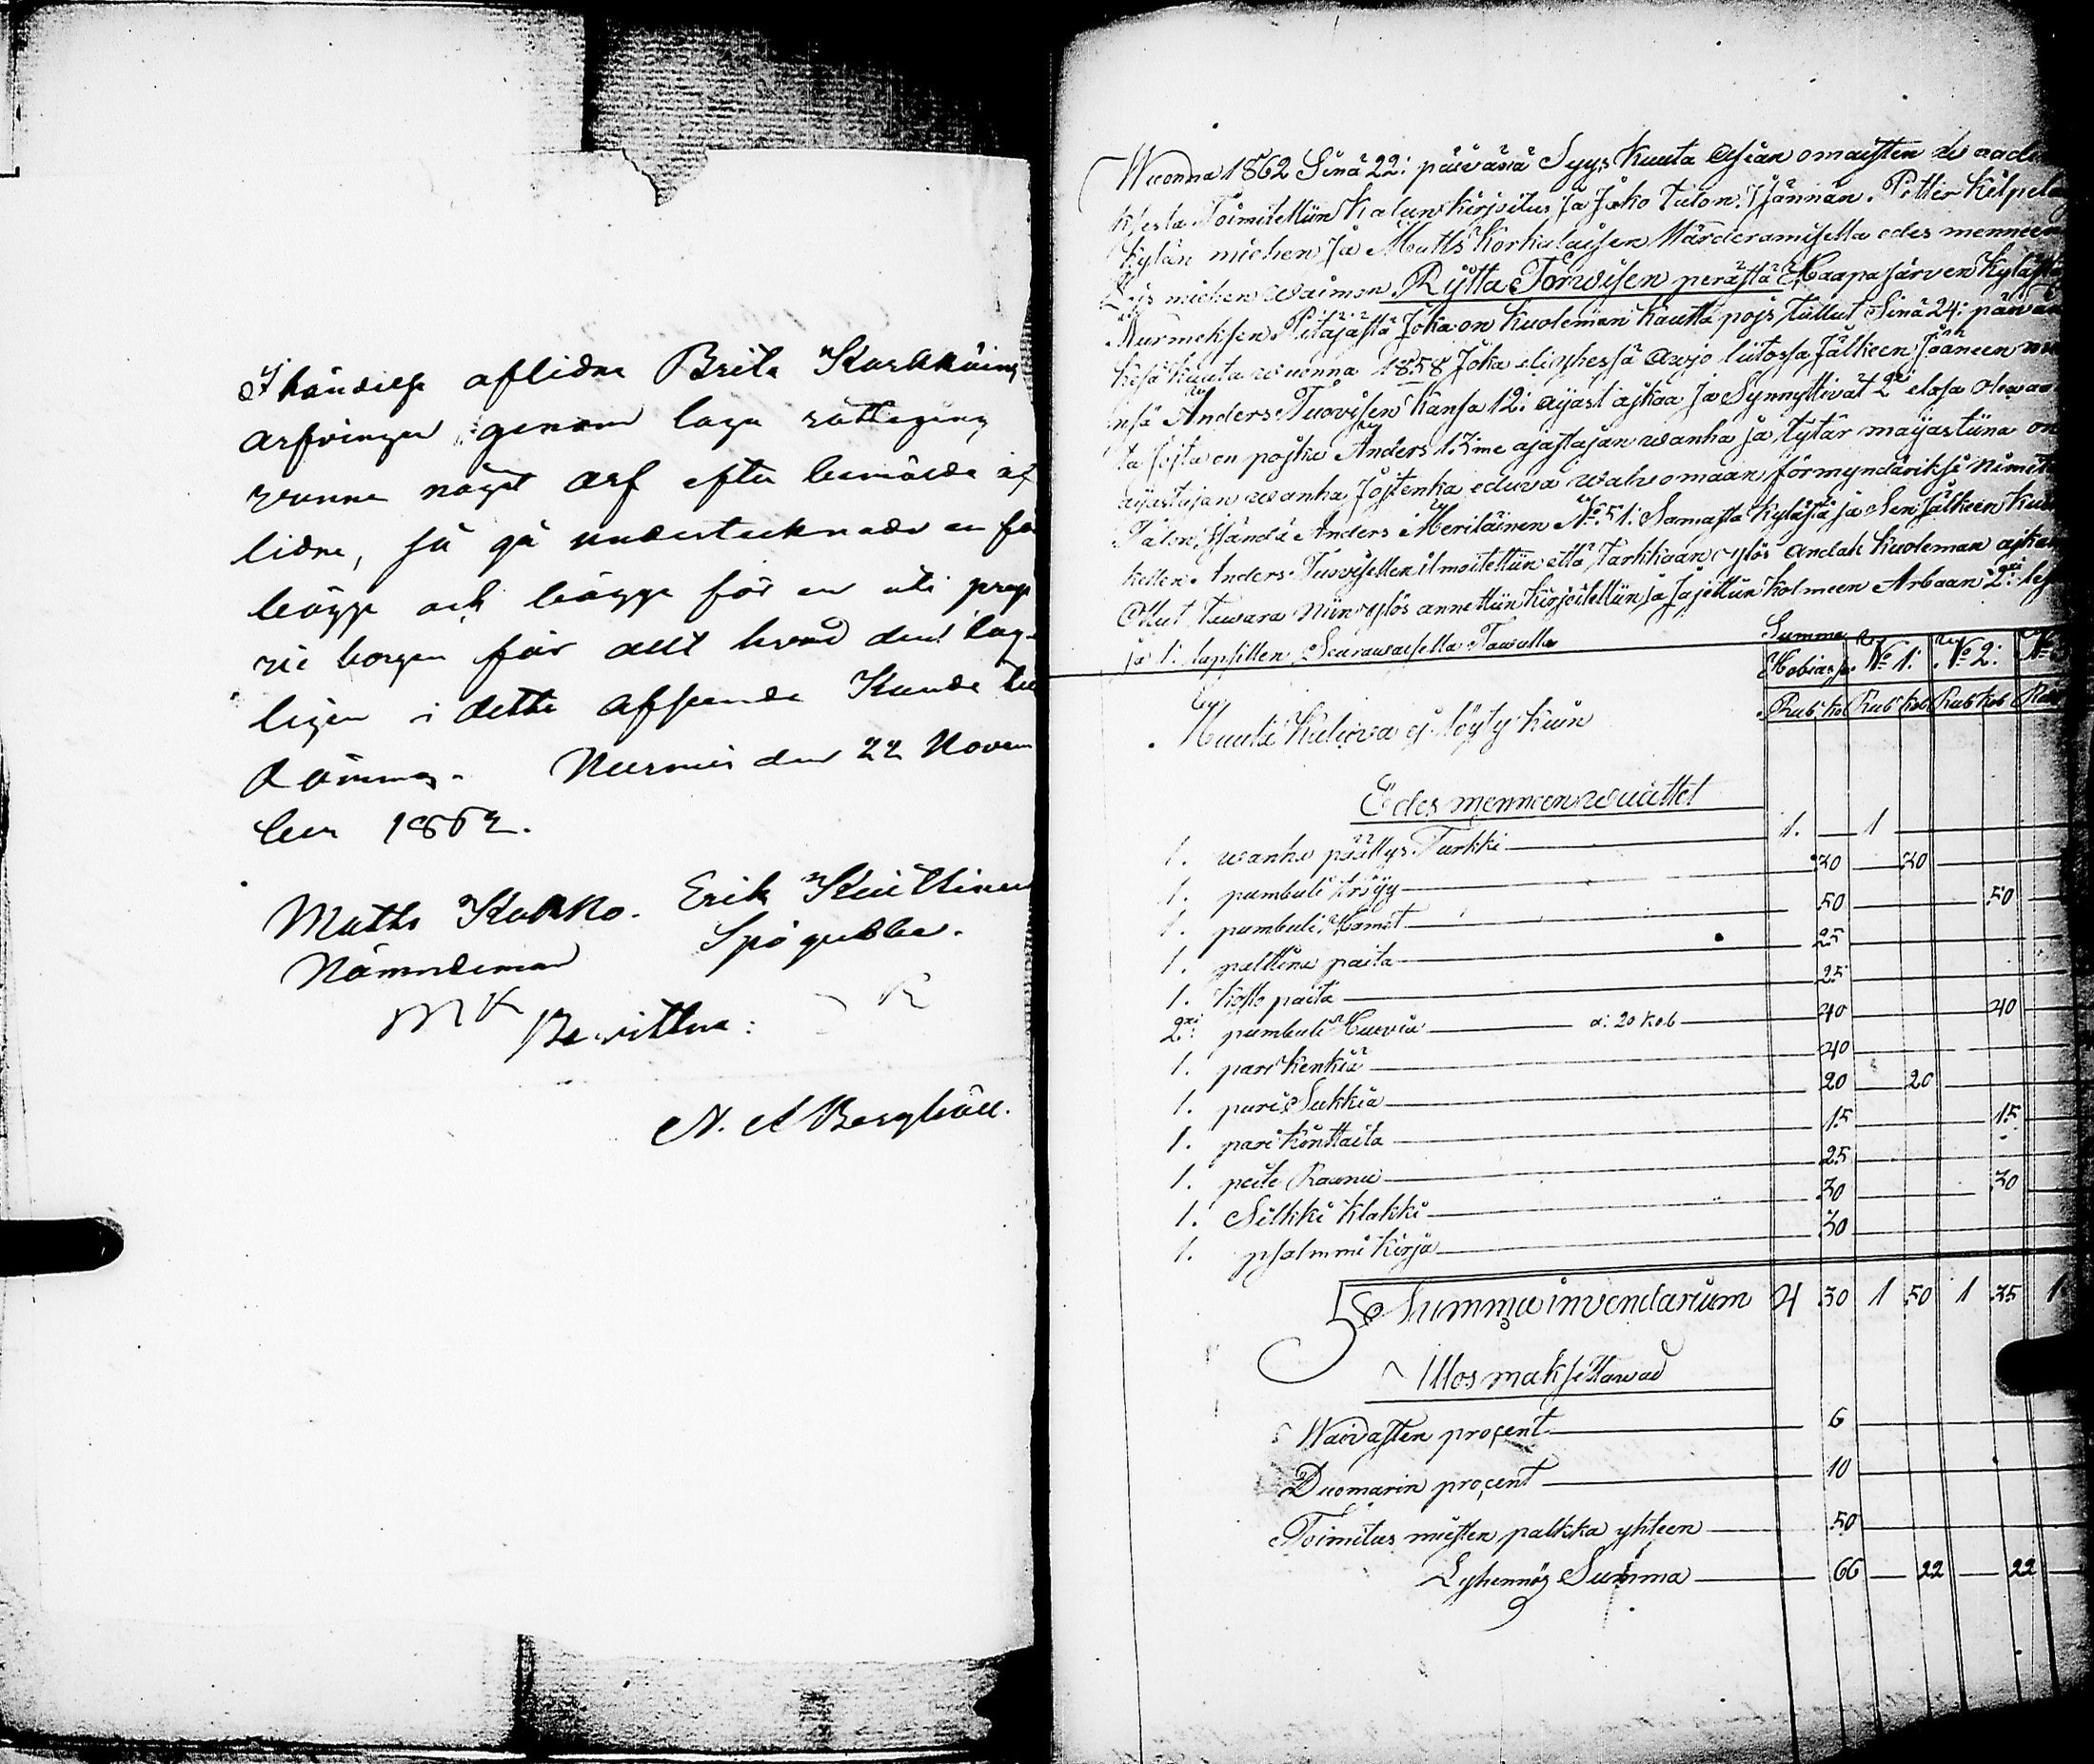 I händelse aflidne Brita Karkkäing
arfvingar genom laga rättegång
vunne något arf efter bemälde af
lidne, så gå undertecknade en fö
bägge och bägge för en uti prop
rie borgen för allt hvad dem lag-
ligen i detta afseende Kunde
dömmas. Nurmis den 22 Novem
ber 1862.
Matts Kakko. Erik Kuittinen
Nämndeman Spögubbe.
M K
Bevittna:
N. A Berghäll.
Wuonna 1862 Sinä 22: päiwänä Syys Kuuta Asian omaisten
Toimitettiin Kalun Kirjoitus ja Jako talon Isännän Petter Kilpelä
Kylän miehen Ja Matts Korhalaisen Wärderamisella edes menneen
miehen waimon Riitta Torwisen perästä Haapajärven Kylästä
Nurmeksen Pitäjästä Joka on Kuoleman Kautta pojs tullut Sinä 24: päivä
Kesä Kuuta wuonna 1858 Joka eli yhessä awjo liitossa Jälkeen Jääneen
nsä Anders Tuovisen Kansa 12: ajast ajkaa Ja Synnyttivät 2xi elosa olewaa
ta Josta on pojka Anders 13me ajastajan wanha ja tytär maijastiina on
ajastajan wanha Jostenka eduwa walwomaan förmyndäriksi nimite
Talon Isändä Anders Meriläinen No 51: Samasta Kylästä ja Sen Jälkeen
kellen Anders Tuovisellen ilmoitettiin että tarkkaan ylös andak Kuoleman ajkan
Ollut tawara Niin ylös annettiin Kirjoitettiin Ja Jajettiin Kolmeen Arbaan 2xi
ja 1: lapsillen Seurawaisella Tawalla
Summa
No 1: No 2: No
Rub Kob Rub Kob Rub Kob Rub
Muuta Kaluva ej löyty Kuin
Edes menneen waattet
1. wanha päällys Turkki 1. 1
1. pumbuli tröyy 30 30
1. pumbuli Hamet 50 50
1. palttina paita 25
1. Kosto paita 25
2xi: pumbuli Huivia a: 20 Kob 40 40
1. pari Kenkiä 40
1. pari Sukkia 20 20
1. pari Könttaita 15 15
1. peite Raanu 25
1. Silkki Klakki 30 30
1. psalmmi Kirja 30
Summa invendarium 4 30 1 50 1 35 1
Ullos maksettawad
Waivasten procent 6
Duomarin procent 10
Toimitus miesten palkka yhteen 50
Lyhennös Summa 66 22 22